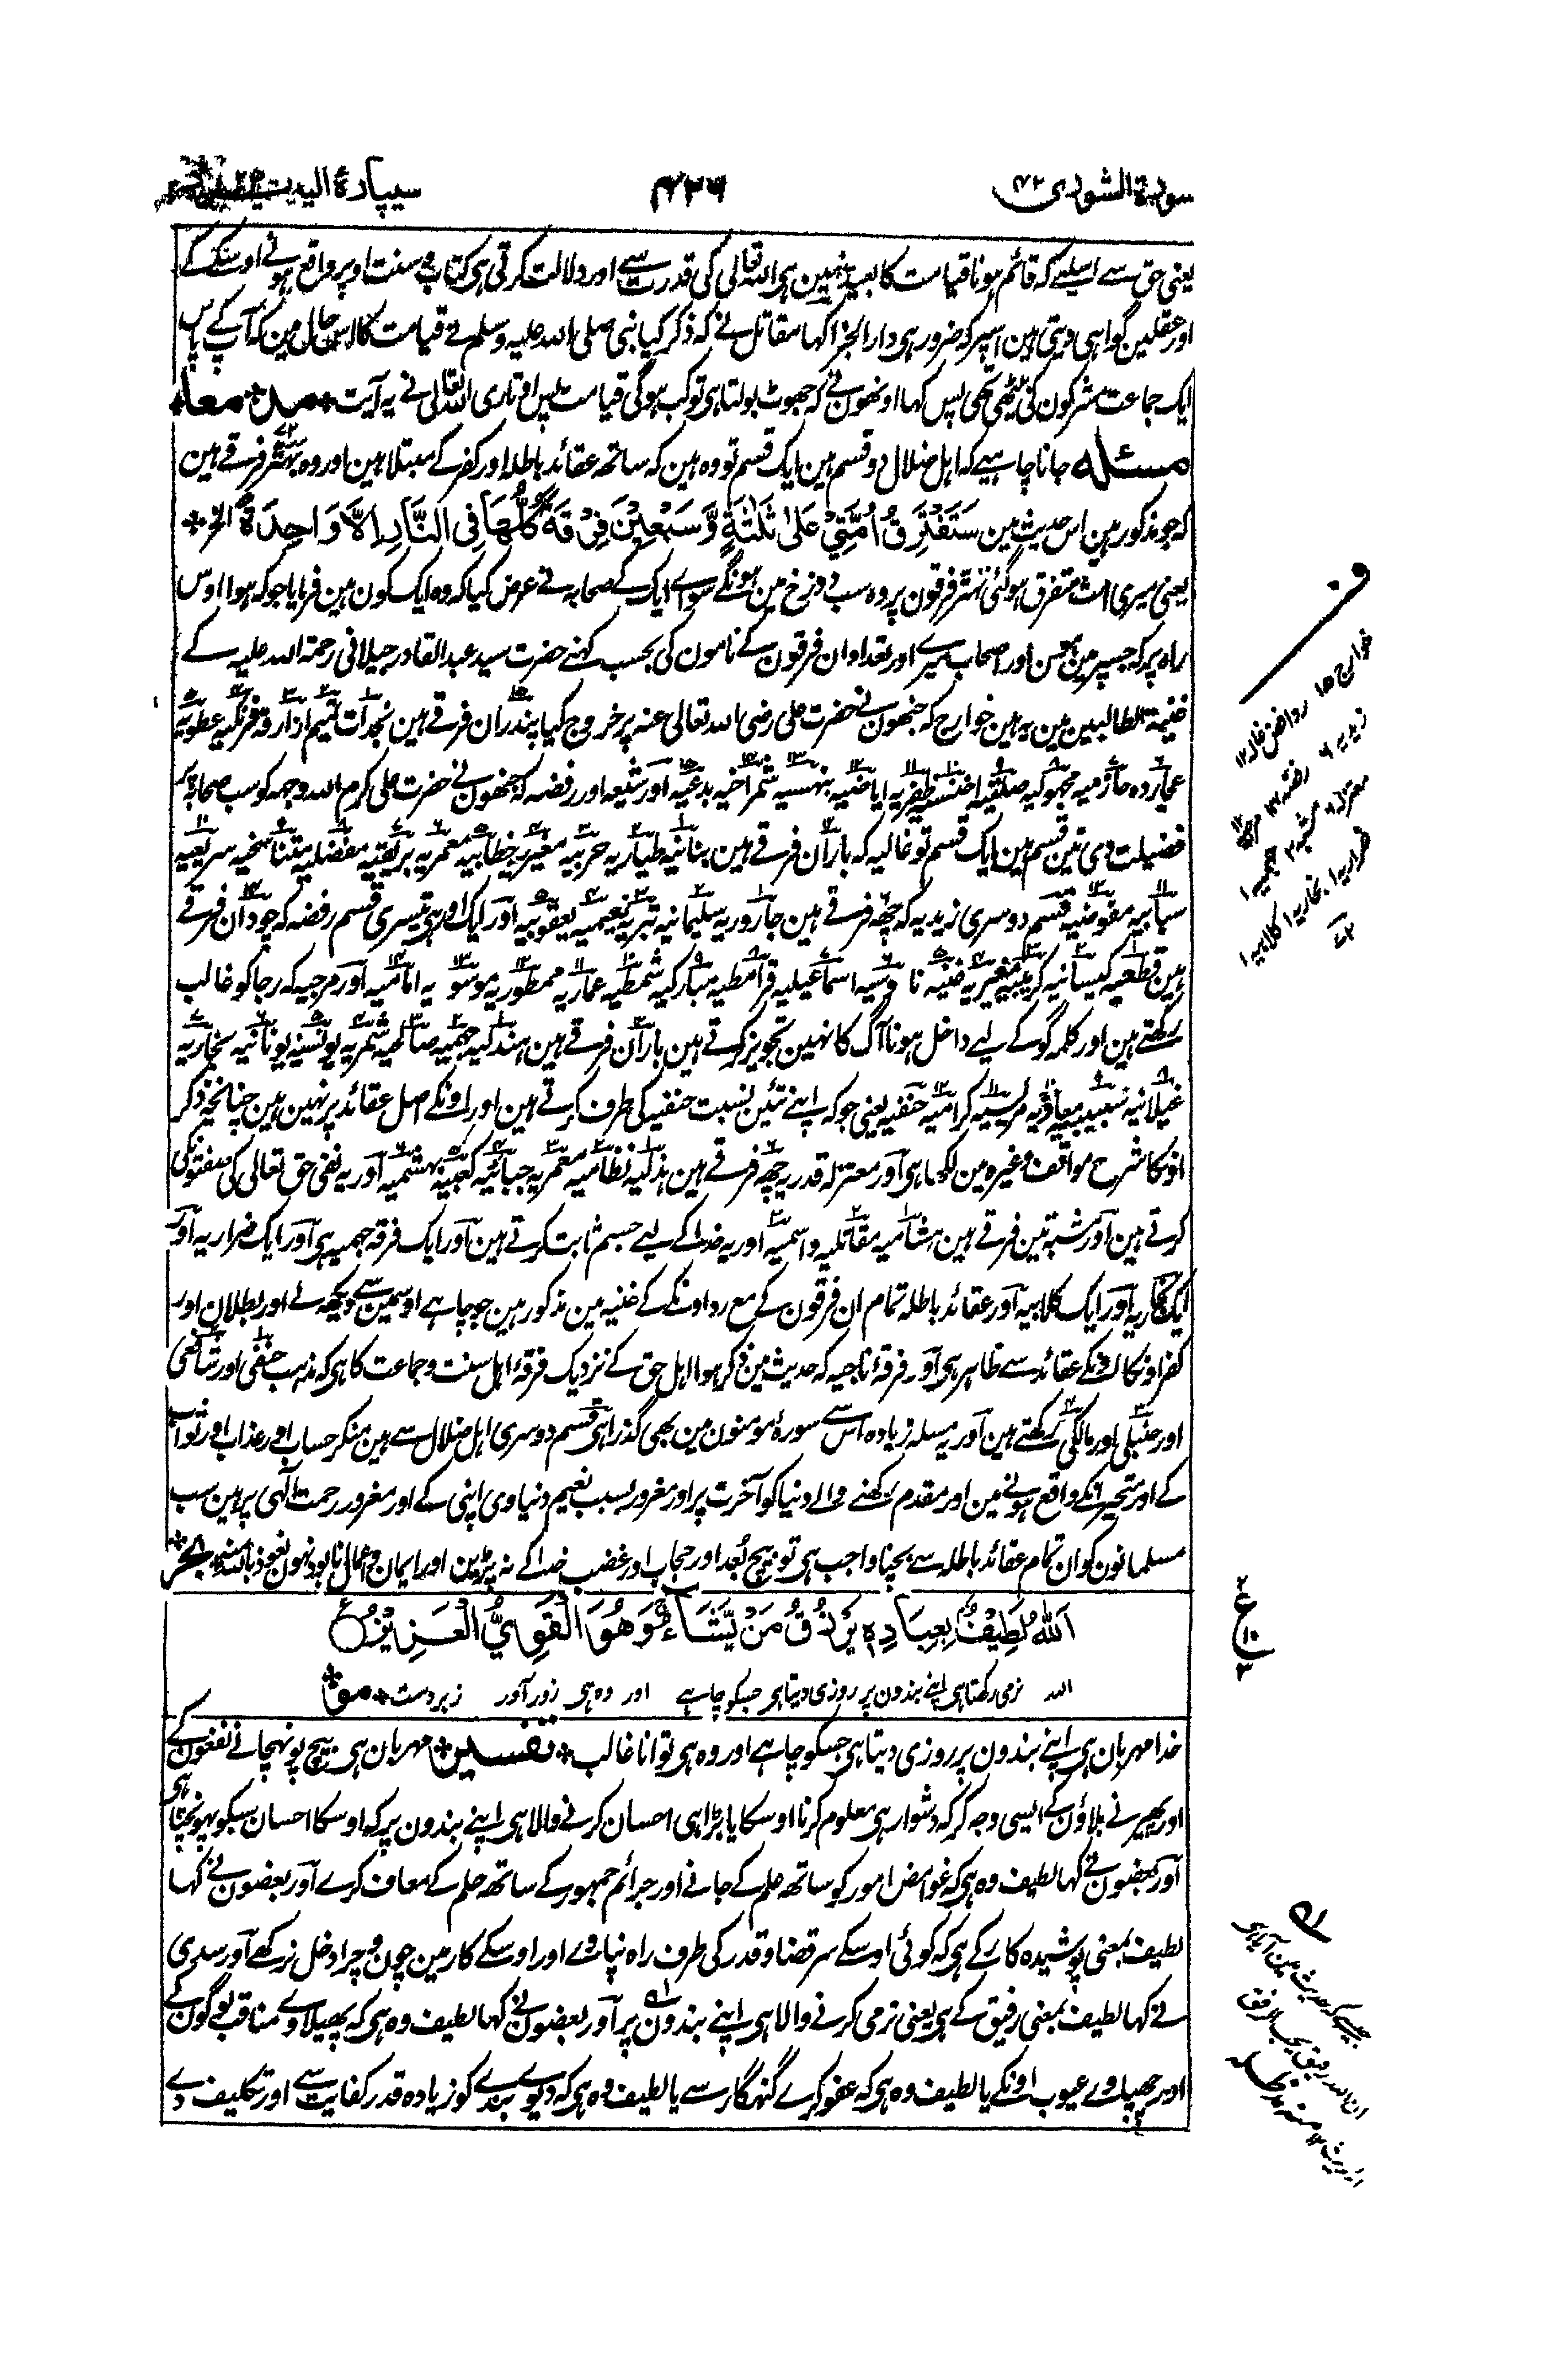 سورة الشوری ۴۲
۴۲۶
سیپارۂ الیہ یرد
یعنی حق سے اسلیے کہ قائم ہونا قیامت کا بعید نہین ہی اللہ تعالی کی قدرت سے اور دلالت کرتی ہی کتاب و سنت اوپر واقع ہونے اوسکے کے
اور عقلین گواہی دیتی ہین اسپر کہ ضرور ہی دار الجزا کہا مقاتل نے کہ ذکر کیا نبی صلی اللہ علیہ وسلم نے قیامت کا اس حال مین کہ آپ کے پاس
ایک جماعت مشرکون کی بیٹھی تھی پس کہا اونھون نے کہ جھوٹ بولتا ہی تو کب ہوگی قیامت پس اوتاری اللہ تعالی نے یہ آیت * مد * معا *
مسئلہ جانا چاہیے کہ اہل ضلال دو قسم ہین ایک قسم تو وہ ہین کہ ساتھ عقائد باطلہ اور کفر کے مبتلا ہین اور وہ بہتر فرقے ہین
کہ جو مذکور ہین اس حدیث مین سَتَفْتَرِقُ اُمَّتِیْ عَلٰی ثَلٰثَةٍ وَّسَبْعِیْنَ فِرْقَةً کُلُّهَا فِی النَّارِ اِلَّا وَاحِدَةً الخ *
یعنی میری امت متفرق ہوگی تہتر فرقون پر وہ سب دوزخ مین ہونگے سواے ایک کے صحابہ نے عرض کیا کہ وہ ایک کون ہین فرمایا جو کہ ہوا اوس
راہ پر کہ جسپر مین ہون اور اصحاب میرے اور تعداد ان فرقون کے نامون کی بحسب کہنے حضرت سید عبد القادر جیلانی رحمۃ اللہ علیہ کے
غنیۃ الطالبین مین یہ ہین خوارج کہ جنھون نے حضرت علی رضی اللہ تعالی عنہ پر خروج کیا پندران فرقے ہین نجدات تیم ازارقہ فرنکیہ عطویہ
عجاردہ حازمیہ مجہوکیہ صلتیہ اخنسیہ ظفریہ اباضیہ بنہسیہ شمراخیہ بدعیہ اور شیعہ اور رفضہ کہ جنھون نے حضرت علی کرم اللہ وجہہ کو سب صحابہ پر
فضیلت دی تین قسم ہین ایک قسم تو غالیہ کہ باران فرقے ہین بنانیہ طیاریہ حربیہ مغیریہ خطابیہ معمریہ بزیغیہ مفضلیہ متناسخیہ سریعیہ
سبائیہ مفوضیہ قسم دوسری زیدیہ کہ چھہ فرقے ہین جارودیہ سلیمانیہ تبریہ نعیمیہ یعقوبیہ اور ایک اور ہی تیسری قسم رفضہ کہ چودان فرقے
ہین قطعیہ کیسانیہ کریبیہ مغیریہ ناوسیہ اسماعیلیہ قرامطیہ مبارکیہ شمطیہ عماریہ ممطوریہ موسویہ امامیہ اور مرجیہ کہ رجا کو غالب
رکھتے ہین اور کلمہ گو کے لیے داخل ہونا آگ کا نہین تجویز کرتے ہین باران فرقے ہین جہمیہ صالحیہ شمریہ یونسیہ یونانیہ نجاریہ
غیلانیہ شبیبیہ معاذیہ مریسیہ کرامیہ حنفیہ یعنی جو کہ اپنے تئین نسبت حنفیہ کی طرف کرتے ہین اور اونکے اصل عقائد پر نہین ہین چنانچہ ذکر
اونکا شرح مواقف وغیرہ مین لکھا ہی اور معتزلہ قدریہ چھہ فرقے ہین ہذلیہ نظامیہ معمریہ جبائیہ کعبیہ بہشمیہ اور یہ نفی حق تعالی کی صفتونکی
کرتے ہین اور مشبہ تین فرقے ہین ہشامیہ مقاتلیہ واسمیہ اور یہ خدا کے لیے جسم ثابت کرتے ہین اور ایک فرقہ جہمیہ ہی اور ایک ضراریہ اور
ایک نجاریہ اور ایک کلابیہ اور عقائد باطلہ تمام ان فرقون کے مع رد اونکے کے غنیہ مین مذکور ہین جو چاہے اوسمین سے دیکھہ لے اور بطلان اور
کفر اونکا اونکے عقائد سے ظاہر ہی اور فرقۂ ناجیہ کہ حدیث مین ذکر ہوا اہل حق کے نزدیک فرقۂ اہل سنت و جماعت کا ہی کہ مذہب حنفی اور شافعی
اور حنبلی اور مالکی رکھتے ہین اور یہ مسلہ زیادہ اس سے سورۂ مومنون مین بھی گذرا ہی قسم دوسری اہل ضلال سے ہین منکر حساب اور عذاب اور ثواب
کے اور متحیر انکے واقع ہونے مین اور مقدم رکھنے والے دنیا کو آخرت پر اور مغرور بسبب نعیم دنیاوی اپنی کے اور مغرور رحمت آلہی پر ہین سب
مسلمانون کو ان تمام عقائد باطلہ سے بچنا واجب ہی تو بیچ بُعد اور حجاب اور غضب خدا کے نہ پڑین اور ایمان و اعمال نابود نہون نعوذ باللہ منہا * بحر *
اَللّٰهُ لَطِیْفٌۢ بِعِبَادِهٖ یَرْزُقُ مَنْ یَّشَآءُ ۚ وَهُوَ الْقَوِیُّ الْعَزِیْزُ
اللہ نرمی رکھتا ہی اپنے بندون پر روزی دیتا ہی جسکو چاہے اور وہ ہی زور آور زبردست * مو *
خدا مہربان ہی اپنے بندون پر روزی دیتا ہی جسکو چاہے اور وہ ہی توانا غالب * تفسیر * مہربان ہی بیچ پونہچانے نفعون کے
اور پھیرنے بلاؤن کے ایسی وجہ کر کہ دشوار ہی معلوم کرنا اوسکا یا بڑا ہی احسان کرنے والا ہی اپنے بندون پر کہ اوسکا احسان سبکو پہونچتا ہی
اور بعضون نے کہا لطیف وہ ہی کہ غوامض امور کو ساتھ علم کے جانے اور جرائم جمہور کے ساتھ حلم کے معاف کرے اور بعضون نے کہا
لطیف بمعنی پوشیدہ کار کے ہی کہ کوئی اوسکے سر قضا و قدر کی طرف راہ نپاوے اور اوسکے کار مین چون و چرا دخل نرکھے اور سدی
نے کہا لطیف بمعنی رفیق کے ہی یعنی نرمی کرنے والا ہی اپنے بندون پر اور بعضون نے کہا لطیف وہ ہی کہ پھیلاوے مناقب لوگون کے
اور چھپاوے عیوب اونکے یا لطیف وہ ہی کہ عفو کرے گنہگار سے یا لطیف وہ ہی کہ دیوے بندے کو زیادہ قدر کفایت سے اور تکلیف دے
خوارج ۱۵ روافض غالیہ ۱۲
زیدیہ ۶ رفضہ ۱۴
معتزلہ ۶ مشبہ ۳ جہمیہ ۱
ضراریہ ۱ نجاریہ ۱ کلابیہ ۱
۷۲
ع
جیسے کہ حدیث مین آیا ہی
ان اللہ رفیق یحب الرفق